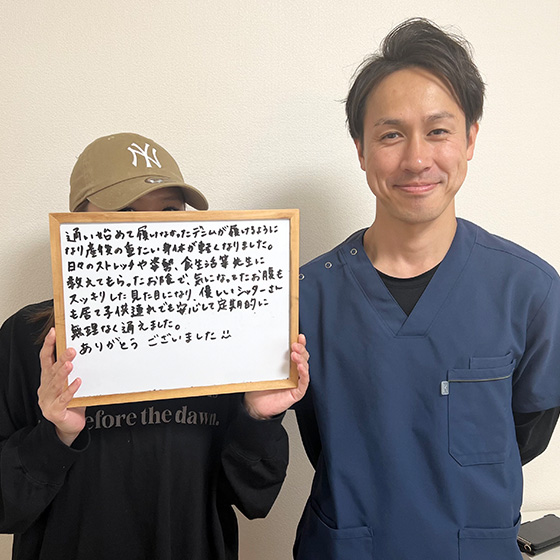 NY
通い始めて履けなかったデニムが履けるように
なり産後の重たい身体が軽くなりました。
日々のストレッチや姿勢、食生活等先生に
教えてもらったお陰で、気になってたお腹も
スッキリした見た目になり、優しいシッターさん
も居て子供連れでも安心して定期的に
無理なく通えました。
ありがとう ございました
efore the dawn.